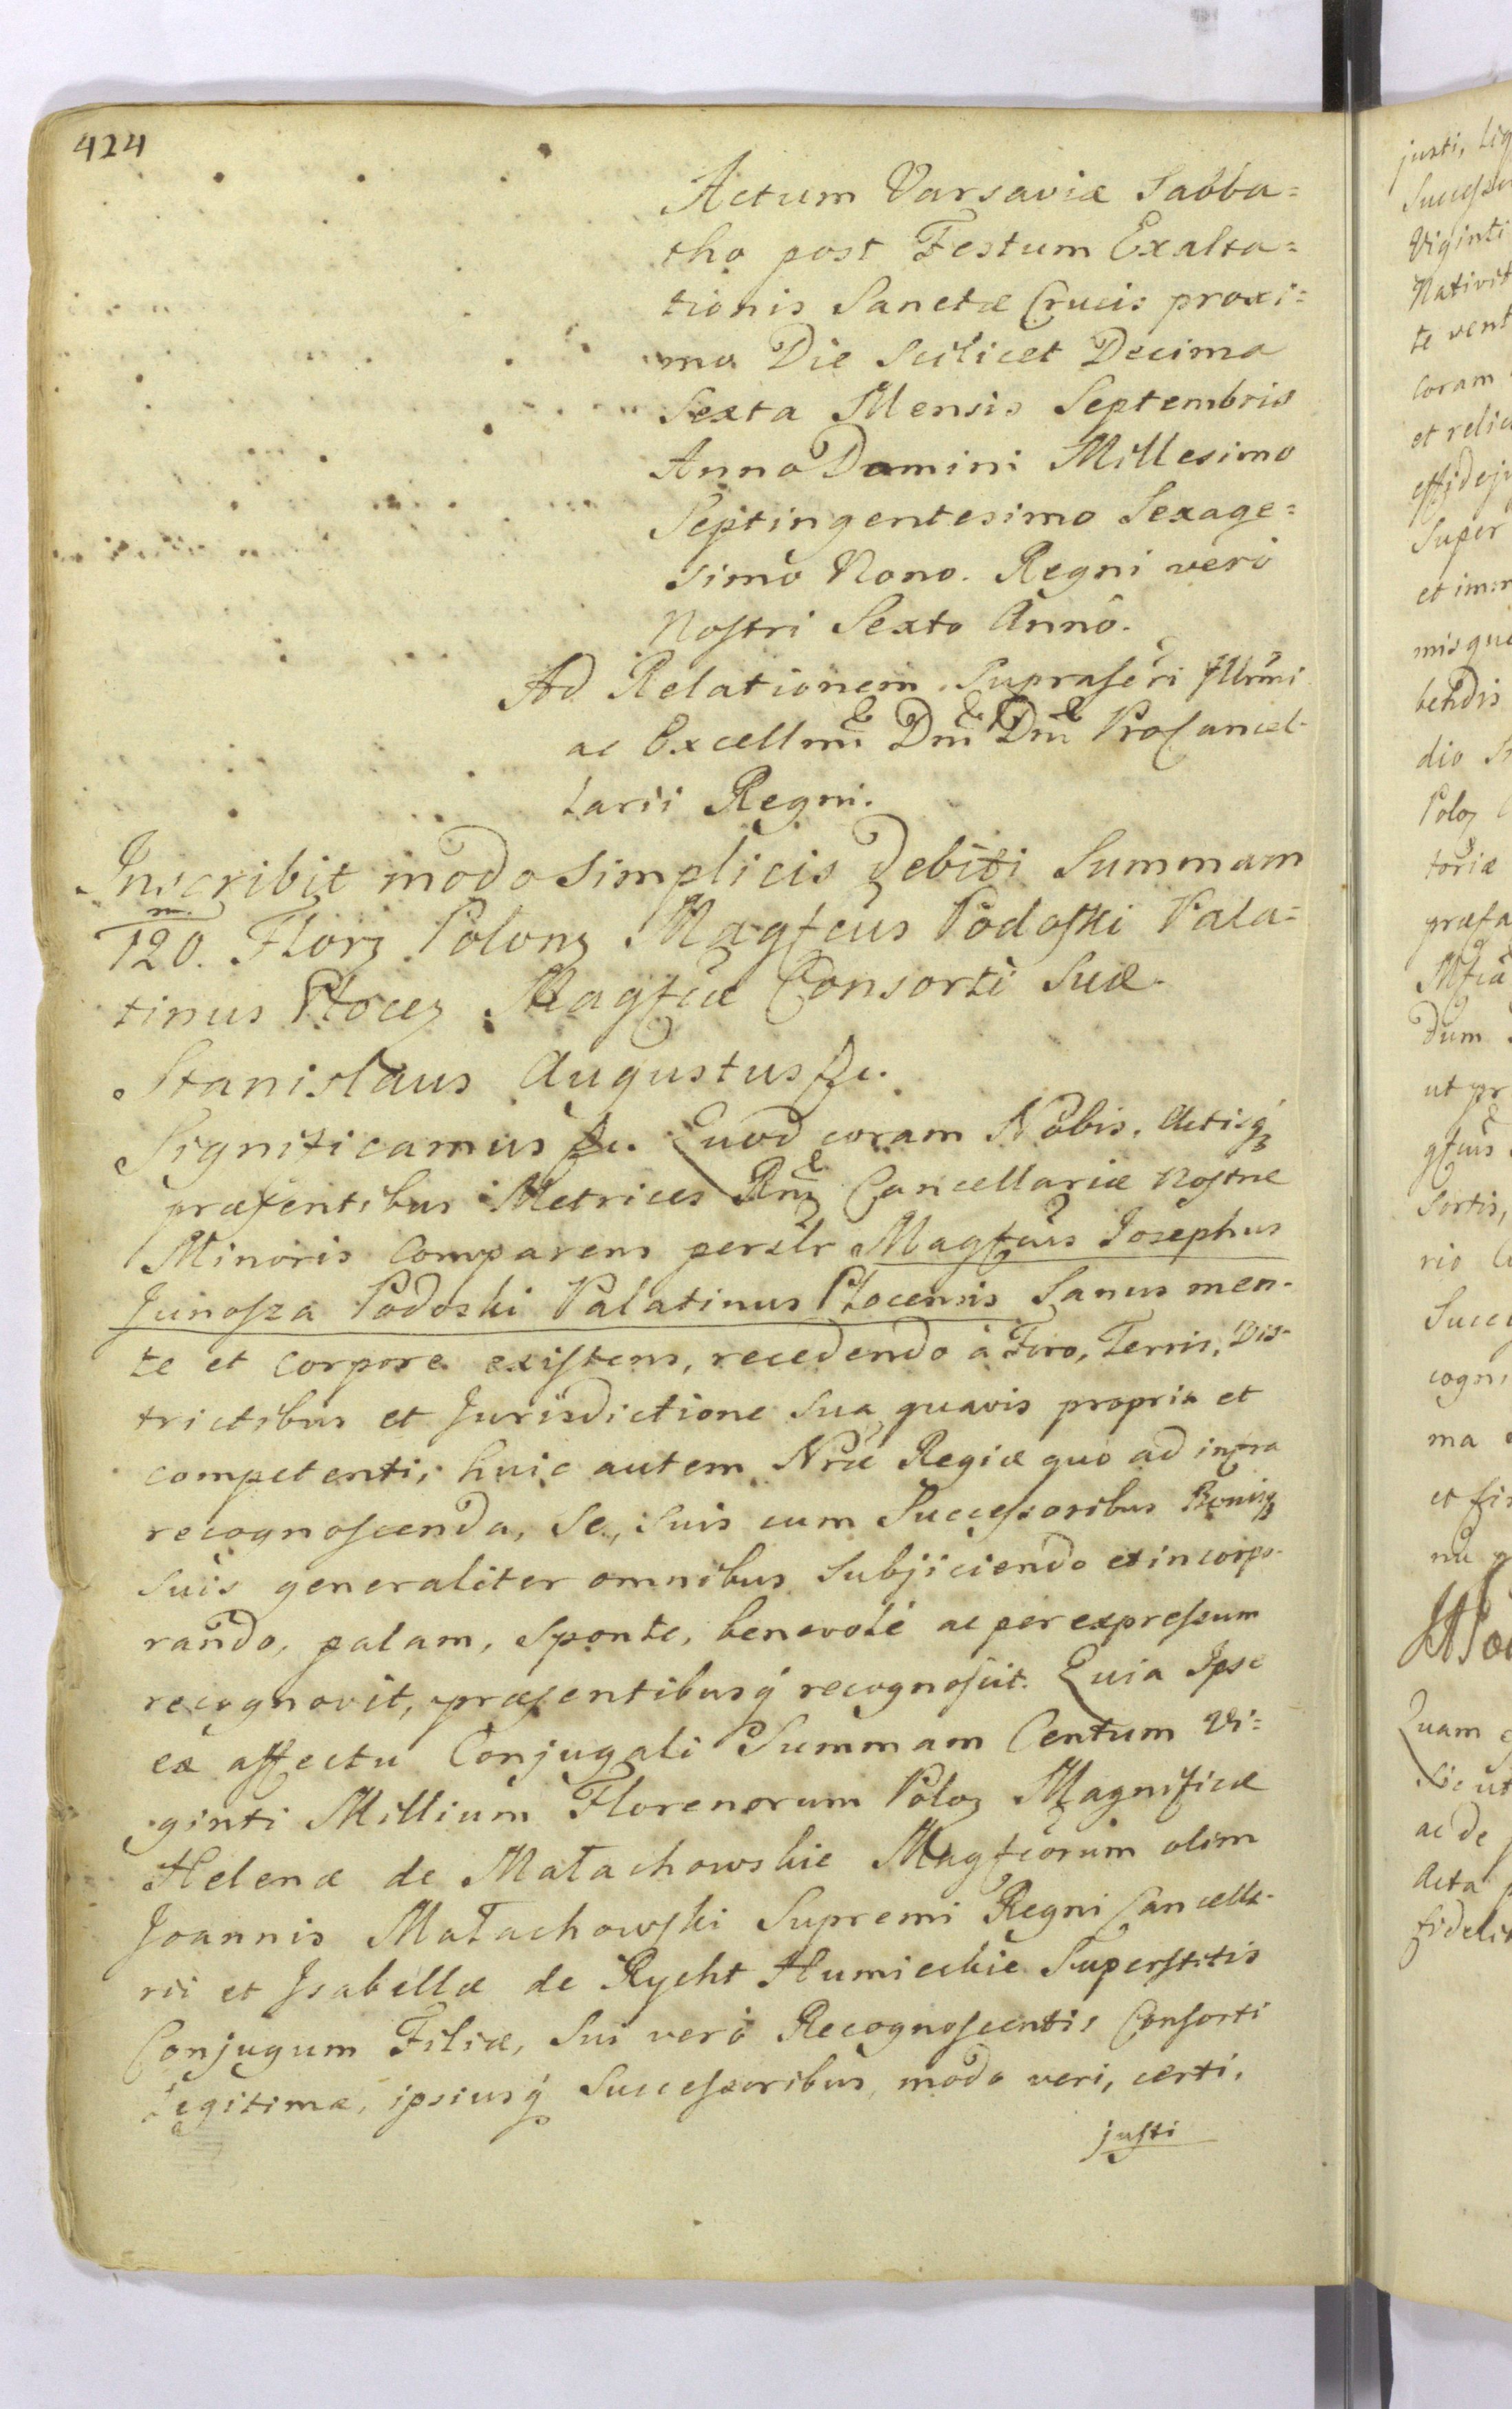 424
Actum Varsaviæ Sabba=
tho post Festum Exalta=
tionis Sanctæ Crucis proxi=
mo Die Scilicet Decima
Sexta Mensis Septembris
Anno Domini Millesimo
Septingentesimo Sexage=
simo Nono. Regni verò
Noſtri Sexto Annô.
Ad Relationem Supraſcri Illrmi
ac Excellmi Dni Dni ProCancel-
larii Regni.
Inscribit modo Simplicis Debiti Summam
m
120. Florz Polonz Magfcus Podoſki Pala=
tinus Plocez Magfcæ Consorti Suæ.
Stanislaus Augustus &c.
Significamus &c. Quod coram Nobis, Actisqz
præſentibus Metrices Rniz Cancellariæ Noſtræ
Minoris Comparens persltr Magfcus Josephus
Junoſza Podoski Palatinus Płocensis Sanus men-
te et Corpore exiſtens, recedendo à Foro, Terris, Dis-
trictibus et Jurisdictione Sua quavis propria et
competenti, huic autem Nræ Regiæ quo ad infra
recognoſcenda, Se, Suis cum Succeſsoribus Bonisqz
Suis generaliter omnibus Subjiciendo et incorpo-
rando, palam, Sponte, benevolè ac per expreſsum
recognovit, præſentibusq́ recognoſcit. Quia Ipse
ex affectu Conjugali Summam Centum Vi=
ginti Millium Florenorum Poloz Magnificæ
Helenæ de Małachowskie Magfcorum olim
Joannis Małachowſki Supremi Regni Cancella-
rii et Isabellæ de Rycht Humieckie Superſtitis
Conjugum Filiæ, Sui verò Recognoſcentis Conſorti
legitimæ, ipsiusq́ Succeſsoribus, modo veri, certi,
juſti
justi, Liq
Succeſso
Viginti
Nativit
te vent
Coram
et relic
effidej
Super
et im
mis que
bendis
dio
Poloz
toriæ
præfa
Mfcæ
Dum
ut pr
gfcus
Sortis,
rio
Succe
cogni
ma
et fi
Quam
Sicut
ac de
Acta
fideli